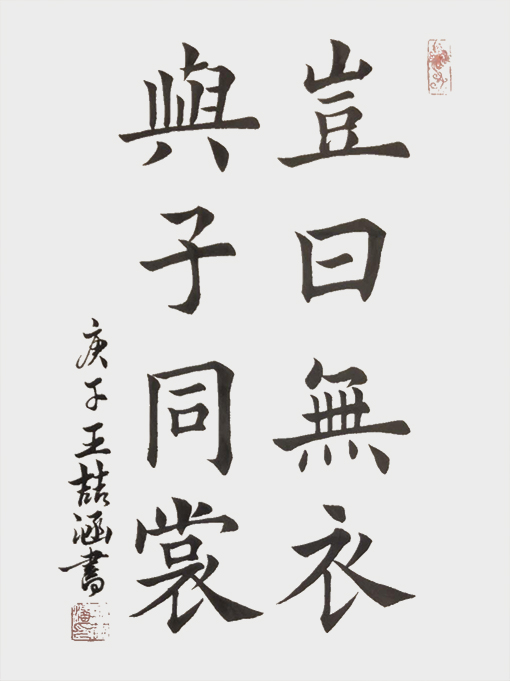 豈曰無衣
與子同裳
庚子王喆涵書